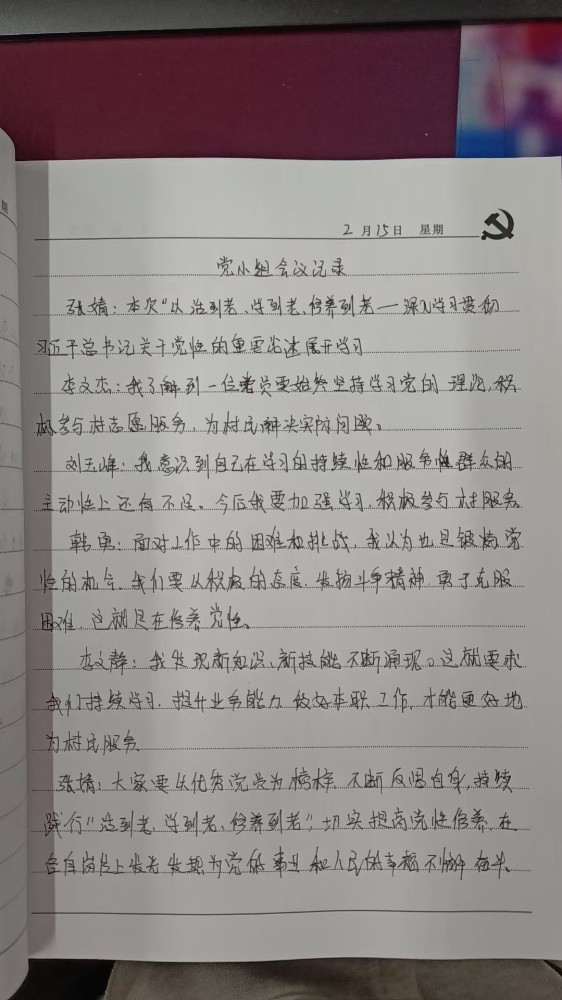 期
2月15日 星期
党小组会议记录
张婧：本次“以活到老、学到老、修养到老—深入学习贯彻
习近平总书记关于党性的重要论述展开学习
李文杰：我了解到一位党员要始终坚持学习党的理论，积
极参与村志愿服务，为村民解决实际问题。
刘玉峰：我意识到自己在学习的持续性和服务性群众的
主动性上还有不足。今后我要加强学习，积极参与村服务。
韩勇：面对工作中的困难和挑战，我认为也是锻炼党
性的机会，我们要从积极的态度，发扬斗争精神，勇于克服
困难，这就是在修养党性。
李文静：我发现新知识、新技能不断涌现。这就要求
我们持续学习，提升业务能力，做好本职工作，才能更好地
为村民服务。
张婧：大家要以优秀党员为榜样，不断反思自身，持续
践行“活到老，学到老、修养到老”，切实提高党性修养，在
各自岗位上发光发热为党的事业和人民的幸福不懈奋斗。